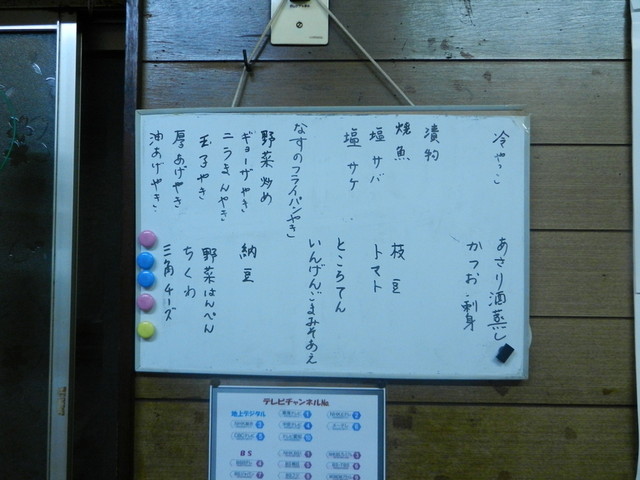 冷やっこ
漬物
焼魚
塩サバ
塩サケ
なすのフライパンやき
野菜炒め
ギョーザやき
ニラまんやき
玉子やき
厚あげやき
油あげやき
あさり酒蒸し
かつお刺身
枝豆
トマト
ところてん
いんげんごまみそあえ
納豆
野菜はんぺん
ちくわ
三角チーズ
テレビチャンネルNo.
地上デジタル
BS